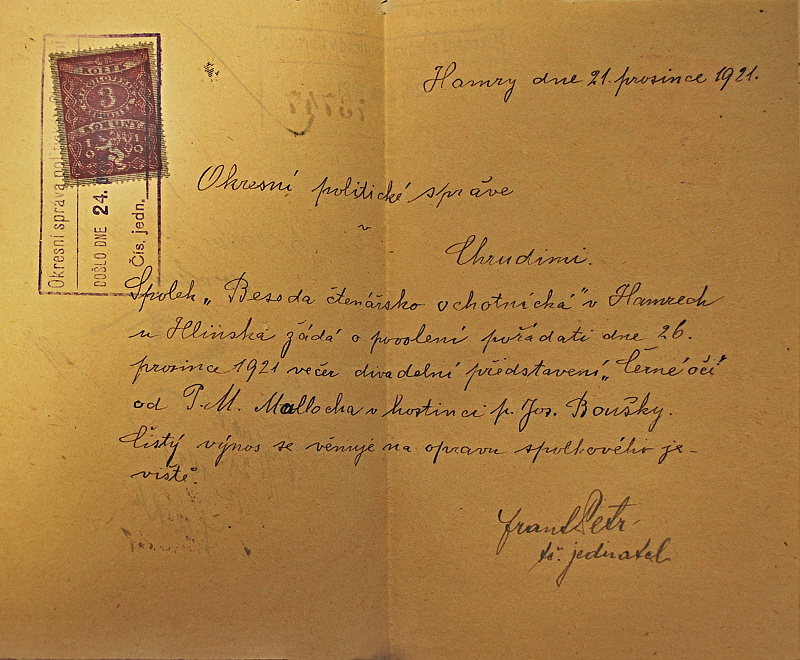 Hamry dne 21. prosince 1921.
Okresní politické správě
v
Chrudimi.
Spolek „Beseda čtenářsko ochotnická" v Hamrech
u Hlinska žádá o povolení pořádati dne 26.
prosince 1921 večer divadelní představení „Černé oči"
od P. M. Mallocha v hostinci p. Jos. Boušky.
Čistý výnos se věnuje na opravu spolkového je-
viště.
Frant Petr
tč. jednatel
Okresní správa politická
DOŠLO DNE 24.
Čís. jedn.
KOLEK
3
KORUNY
1919